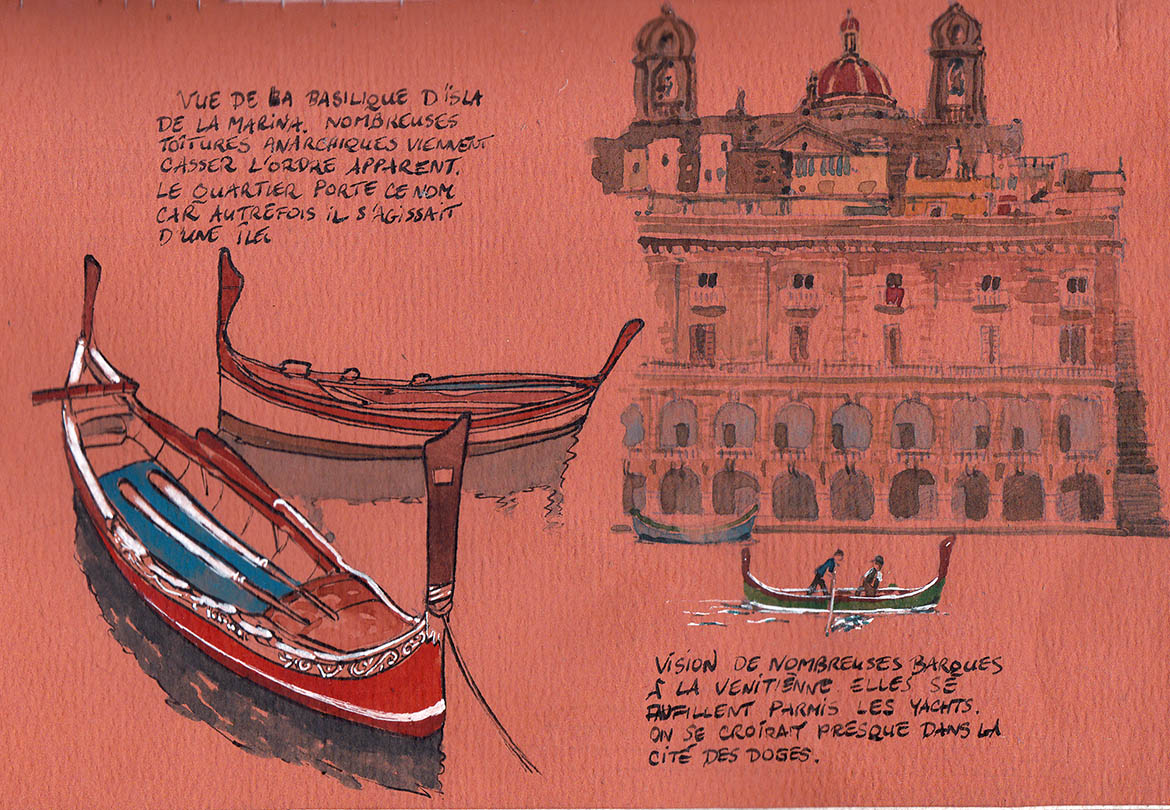 VUE DE LA BASILIQUE D'ISLA
DE LA MARINA. NOMBREUSES
TOITURES ANARCHIQUES VIENNENT
CASSER L'ORDRE APPARENT.
LE QUARTIER PORTE CE NOM
CAR AUTREFOIS IL S'AGISSAIT
D'UNE ÎLE.
VISION DE NOMBREUSES BARQUES
À LA VENITIÈNNE. ELLES SE
FAUFILLENT PARMIS LES YACHTS.
ON SE CROIRAIT PRESQUE DANS LA
CITÉ DES DOGES.